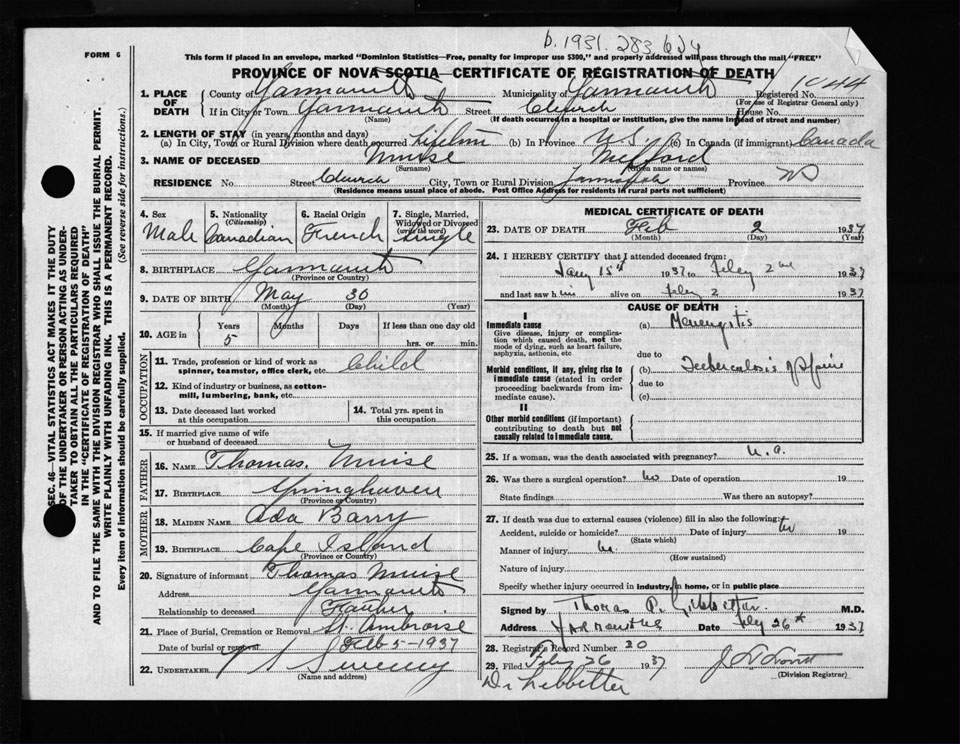 b. 1931. 283.624
FORM 6
This form if placed in an envelope, marked "Dominion Statistics—Free, penalty for improper use $300," and properly addressed will pass through the mail "FREE"
PROVINCE OF NOVA SCOTIA—CERTIFICATE OF REGISTRATION OF DEATH
1. PLACE OF DEATH County of Yarmouth Municipality of Yarmouth Registered No.
(For use of Registrar General only)
If in City or Town Yarmouth Street Church House No.
(Name) (If death occurred in a hospital or institution, give the name instead of street and number)
2. LENGTH OF STAY (in years, months and days)
(a) In City, Town or Rural Division where death occurred Lifetime (b) In Province (c) In Canada (if immigrant) Canada
3. NAME OF DECEASED Muise Mifford
(Surname) (Given name or names)
RESIDENCE No. Street Church City, Town or Rural Division Yarmouth Province NS
(Residence means usual place of abode. Post Office Address for residents in rural parts not sufficient)
4. Sex Male
5. Nationality (Citizenship) Canadian
6. Racial Origin French
7. Single, Married, Widowed or Divorced (write the word) Single
8. BIRTHPLACE Yarmouth
(Province or Country)
9. DATE OF BIRTH May 30
(Month) (Day) (Year)
10. AGE in Years Months Days If less than one day old
5 hrs. or min.
OCCUPATION
11. Trade, profession or kind of work as spinner, teamster, office clerk, etc. Child
12. Kind of industry or business, as cotton-mill, lumbering, bank, etc.
13. Date deceased last worked at this occupation
14. Total yrs. spent in this occupation
15. If married give name of wife or husband of deceased
FATHER
16. NAME Thomas Muise
17. BIRTHPLACE Springhaven
(Province or Country)
MOTHER
18. MAIDEN NAME Ada Barry
19. BIRTHPLACE Cape Island
(Province or Country)
20. Signature of informant Thomas Muise
Address Yarmouth
Relationship to deceased Father
21. Place of Burial, Cremation or Removal St. Ambroise
Date of burial or removal Feb 5-1937
22. UNDERTAKER Sweeney
(Name and address)
MEDICAL CERTIFICATE OF DEATH
23. DATE OF DEATH Feb 2 1937
(Month) (Day) (Year)
24. I HEREBY CERTIFY that I attended deceased from:
Jany 15th 1937 to Feby 2nd 1937
and last saw him alive on Feby 2 1937
CAUSE OF DEATH
I
Immediate cause
Give disease, injury or complication which caused death, not the mode of dying, such as heart failure, asphyxia, asthenia, etc
(a) Meningitis
due to
Morbid conditions, if any, giving rise to immediate cause (stated in order proceeding backwards from immediate cause).
(b) Tuberculosis of Spine
due to
(c)
II
Other morbid conditions (if important) contributing to death but not causally related to immediate cause.
25. If a woman, was the death associated with pregnancy? n.a.
26. Was there a surgical operation? No Date of operation 19
State findings Was there an autopsy?
27. If death was due to external causes (violence) fill in also the following:
Accident, suicide or homicide? Date of injury 19
(State which)
Manner of injury
(How sustained)
Nature of injury
Specify whether injury occurred in industry, in home, or in public place
Signed by Thomas P. M.D.
Address Yarmouth Date Feby 26th 1937
28. Registrar's Record Number 20
29. Filed Feby 26 1937
(Division Registrar)
Dr Lebbetter
SEC. 46—VITAL STATISTICS ACT MAKES IT THE DUTY
OF THE UNDERTAKER OR PERSON ACTING AS UNDER-
TAKER TO OBTAIN ALL THE PARTICULARS REQUIRED
IN THE "CERTIFICATE OF REGISTRATION OF DEATH"
AND TO FILE THE SAME WITH THE DIVISION REGISTRAR WHO SHALL ISSUE THE BURIAL PERMIT.
WRITE PLAINLY WITH UNFADING INK. THIS IS A PERMANENT RECORD.
Every item of information should be carefully supplied. (See reverse side for instructions.)